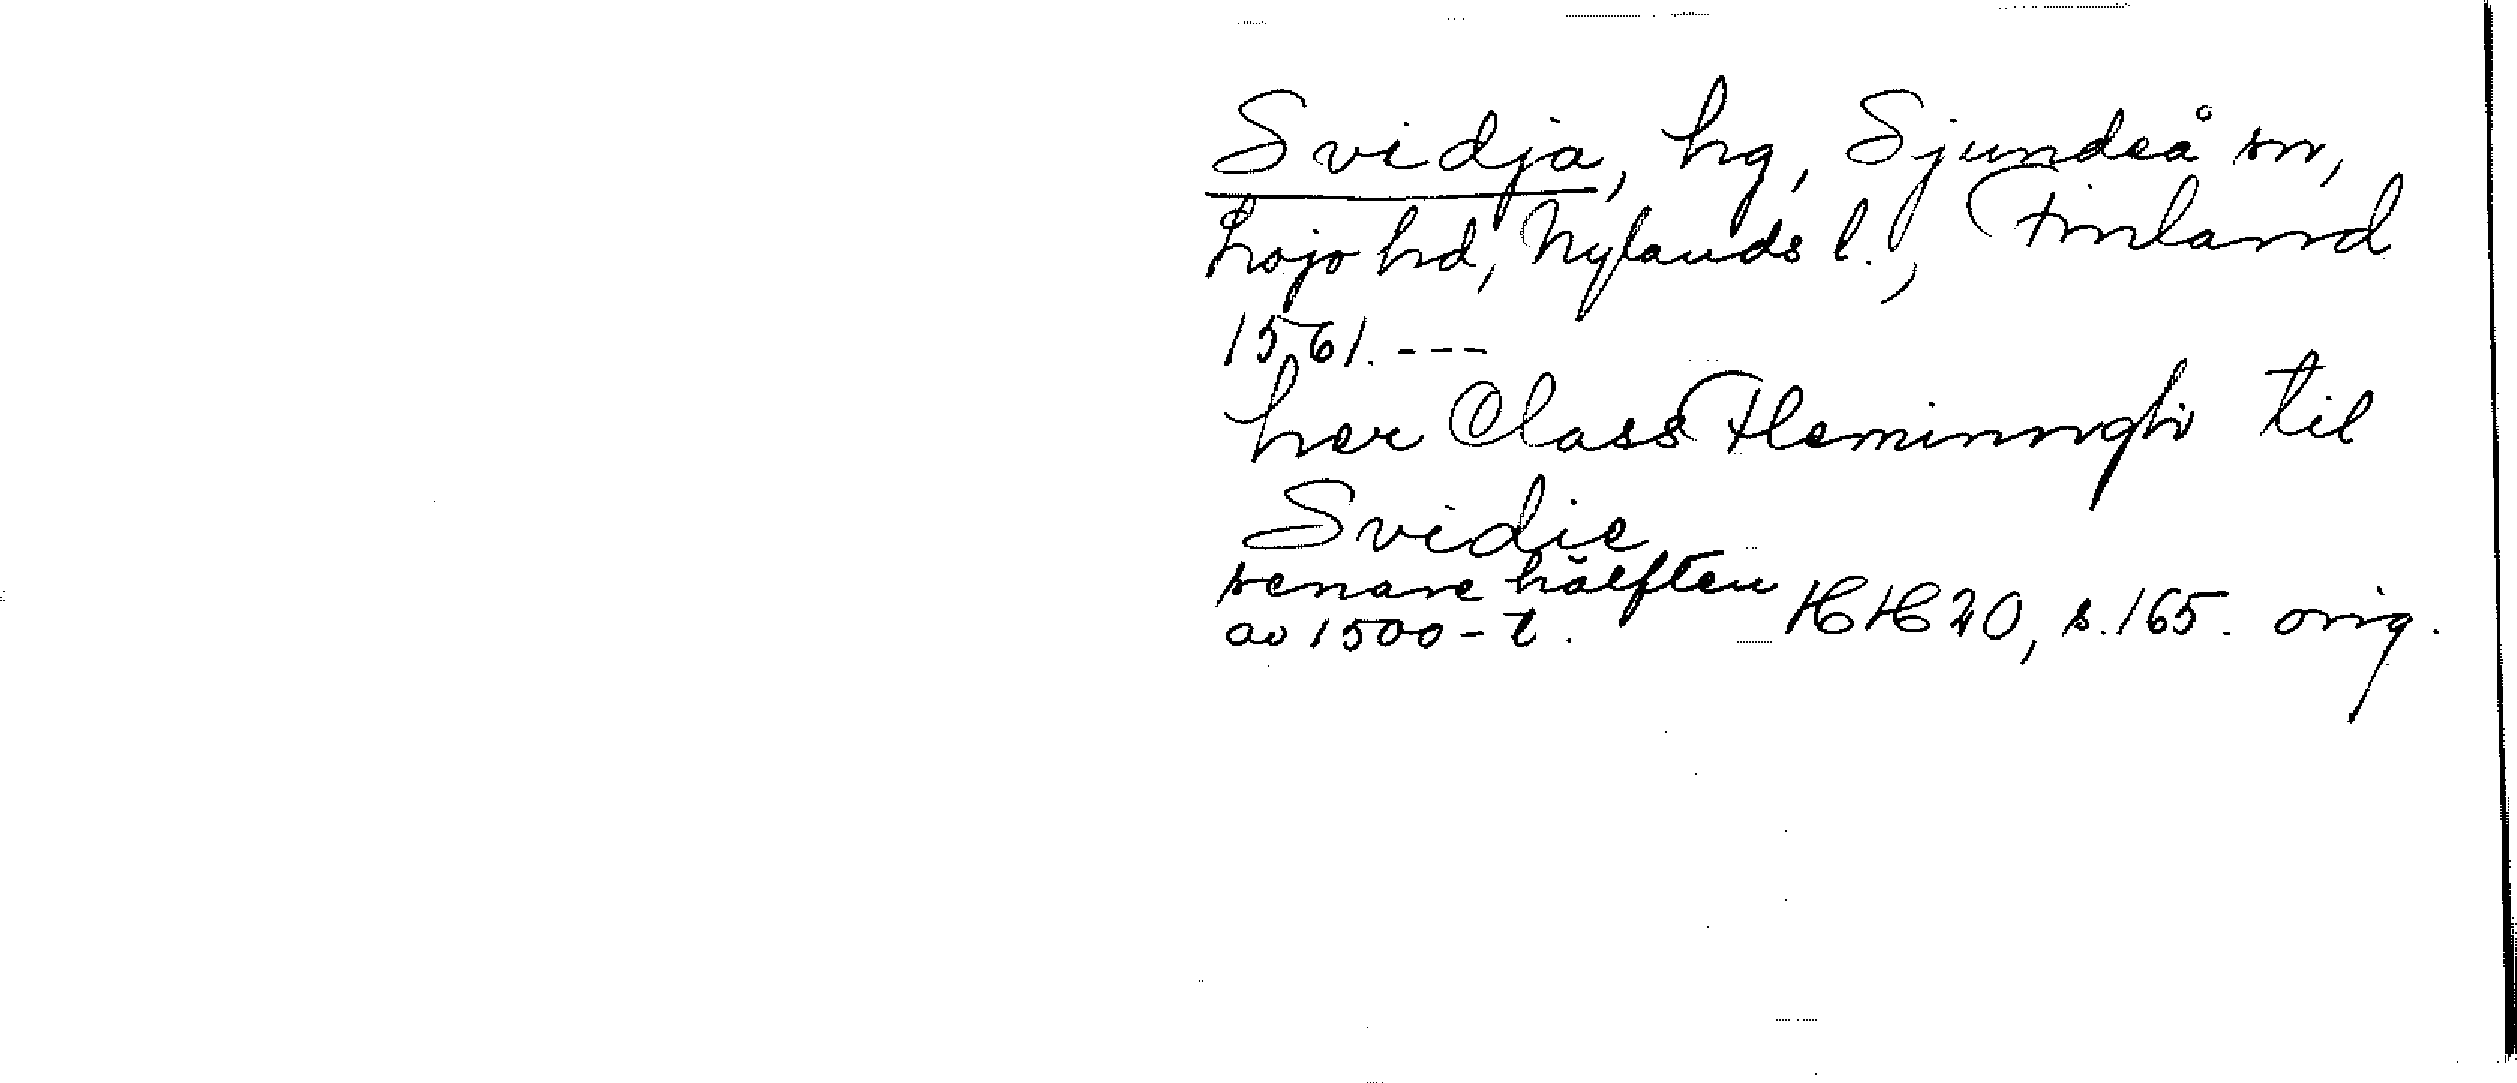 Svidja, hg, Sjundeå sn,
Lojo hd, Nylands l., Finland
1561. ---
her Class Flemingh til
Svidie
senare hälften
av 1500-t. HH 20, s. 165. orig.